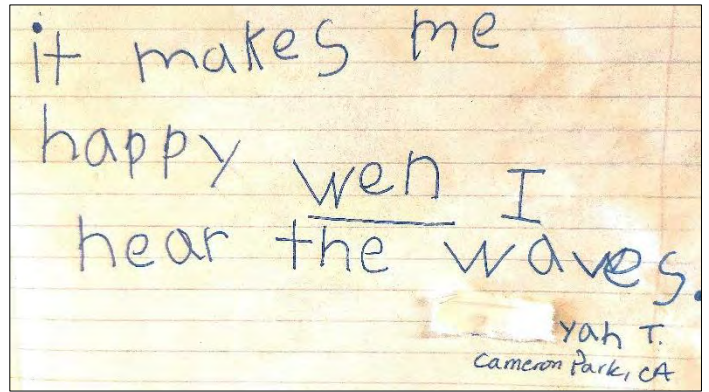 it makes me
happy wen I
hear the waves.
yah T.
Cameron Park, CA